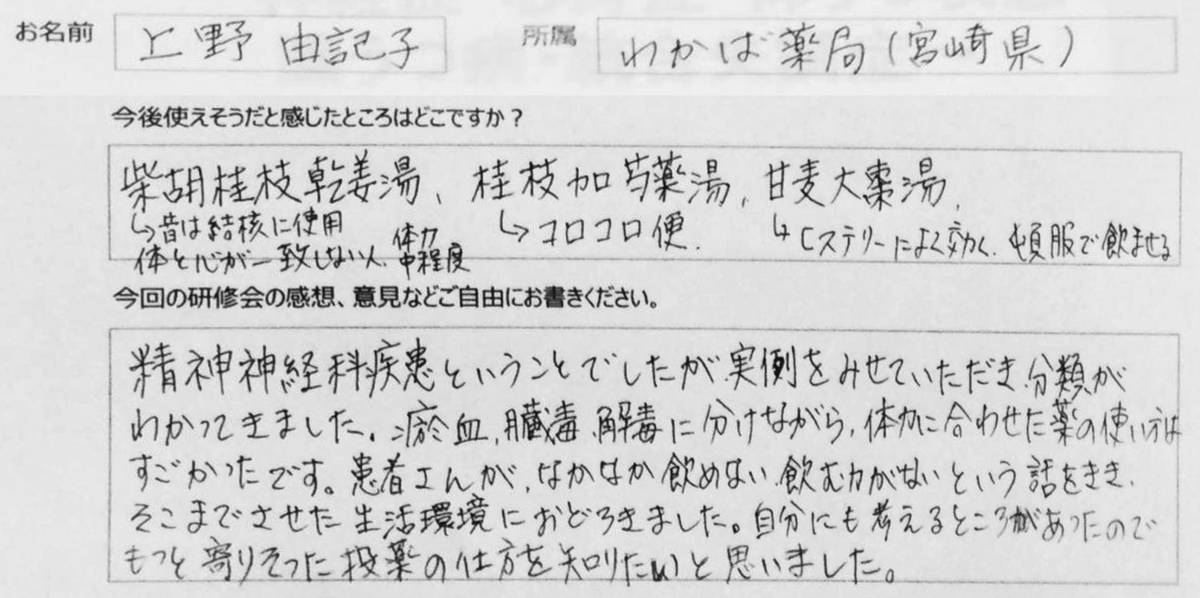 お名前 上野 由記子 所属 わかば薬局(宮崎県)
今後使えそうだと感じたところはどこですか?
柴胡桂枝乾姜湯、桂枝加芍薬湯、甘麦大棗湯、
↳昔は結核に使用 ↳コロコロ便. ↳ヒステリーによく効く、頓服で飲ませる
体と心が一致しない人、体力中程度
今回の研修会の感想、意見などご自由にお書きください。
精神神経科疾患ということでしたが、実例をみせていただき、分類が
わかってきました。瘀血、臓毒、解毒に分けながら、体力に合わせた薬の使い方は
すごかったです。患者さんが、なかなか飲めない、飲む力がないという話をきき、
そこまでさせた生活環境におどろきました。自分にも考えるところがあったので
もっと寄りそった投薬の仕方を知りたいと思いました。